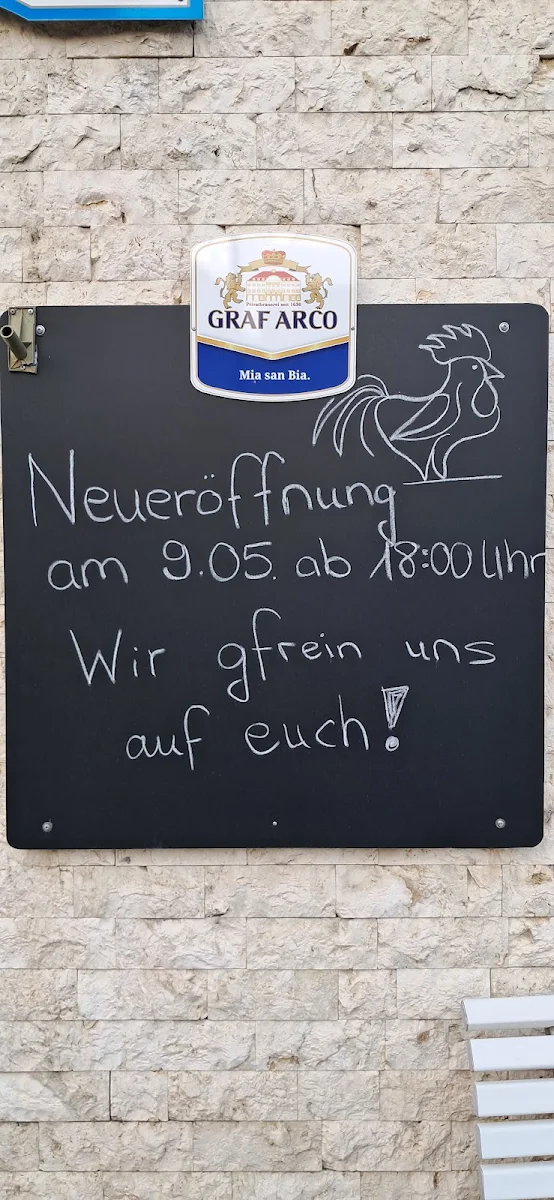 Privatbrauerei seit 1658
GRAF ARCO
Mia san Bia.
Neueröffnung
am 9.05. ab 18:00 Uhr
Wir gfrein uns
auf euch!